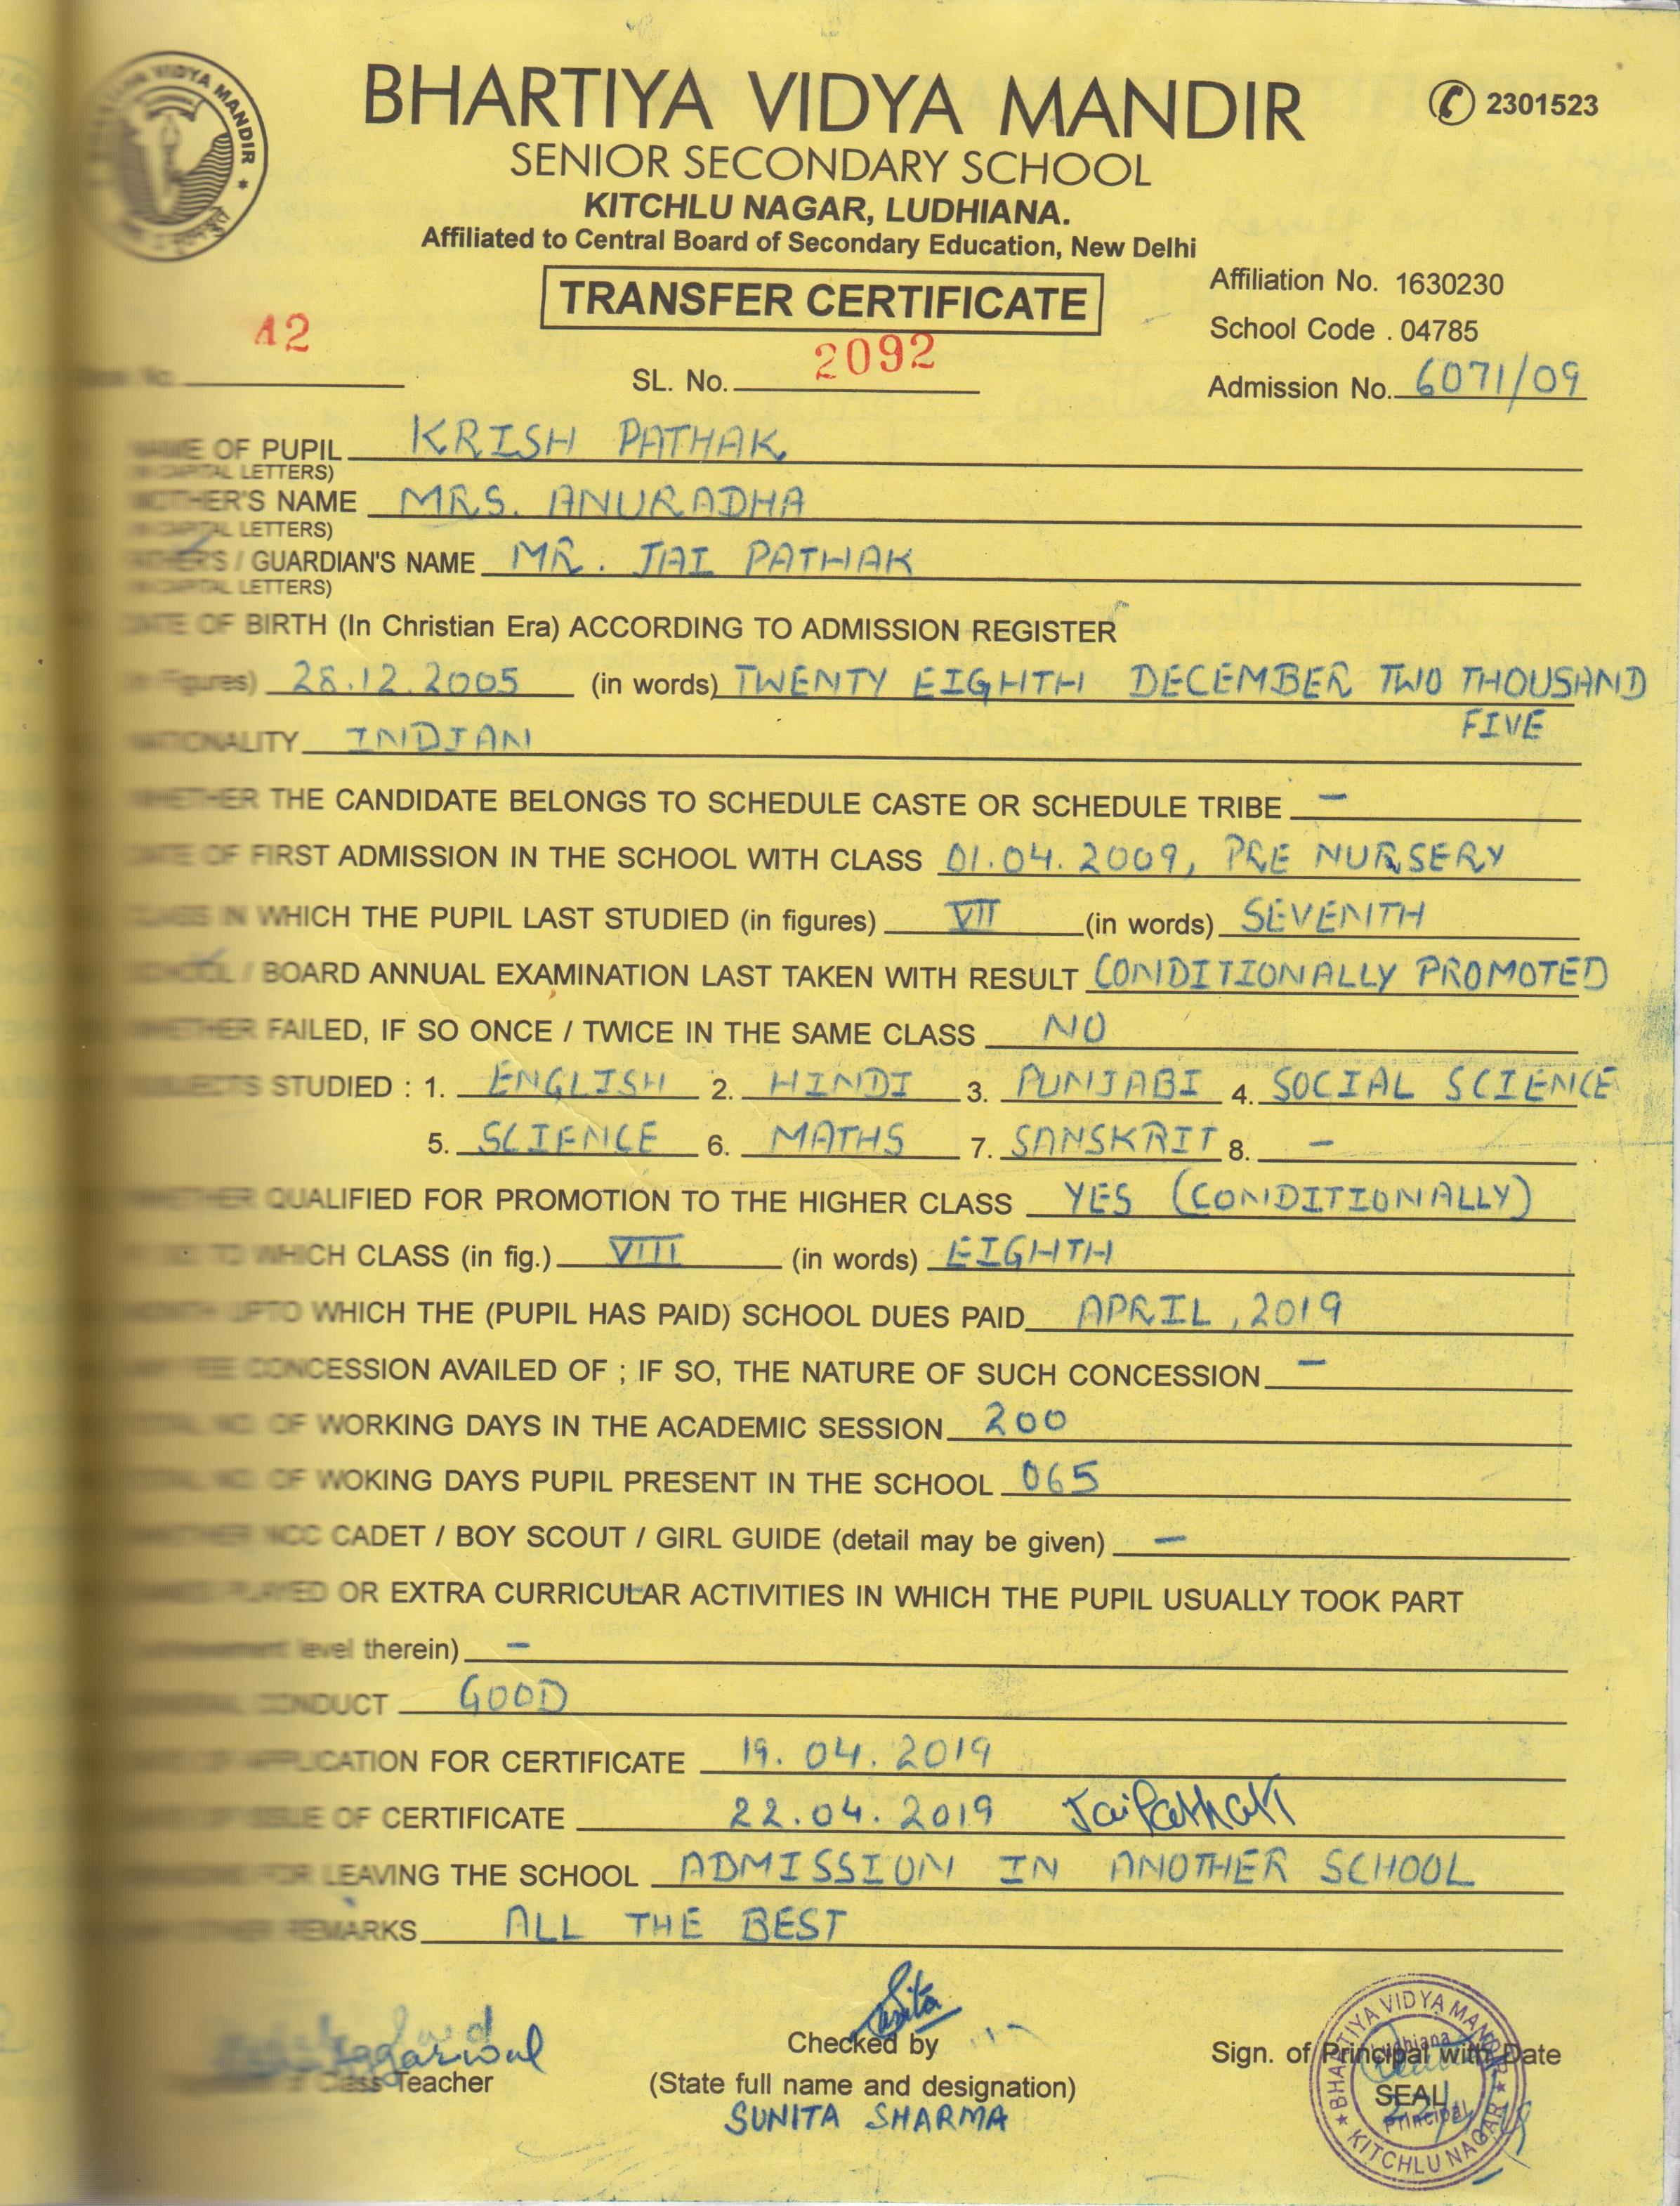 VIDYA MANDIR
BHARTIYA VIDYA MANDIR
2301523
SENIOR SECONDARY SCHOOL
KITCHLU NAGAR, LUDHIANA.
Affiliated to Central Board of Secondary Education, New Delhi
TRANSFER CERTIFICATE
Affiliation No. 1630230
School Code . 04785
42
SL. No. 2092
Admission No. 6071/09
NAME OF PUPIL KRISH PATHAK
(IN CAPITAL LETTERS)
MOTHER'S NAME MRS. ANURADHA
(IN CAPITAL LETTERS)
FATHER'S / GUARDIAN'S NAME MR. JAI PATHAK
(IN CAPITAL LETTERS)
DATE OF BIRTH (In Christian Era) ACCORDING TO ADMISSION REGISTER
(In Figures) 28.12.2005 (in words) TWENTY EIGHTH DECEMBER TWO THOUSAND
FIVE
NATIONALITY INDIAN
WHETHER THE CANDIDATE BELONGS TO SCHEDULE CASTE OR SCHEDULE TRIBE –
DATE OF FIRST ADMISSION IN THE SCHOOL WITH CLASS 01.04.2009, PRE NURSERY
CLASS IN WHICH THE PUPIL LAST STUDIED (in figures) VII (in words) SEVENTH
SCHOOL / BOARD ANNUAL EXAMINATION LAST TAKEN WITH RESULT CONDITIONALLY PROMOTED
WHETHER FAILED, IF SO ONCE / TWICE IN THE SAME CLASS NO
SUBJECTS STUDIED : 1. ENGLISH 2. HINDI 3. PUNJABI 4. SOCIAL SCIENCE
5. SCIENCE 6. MATHS 7. SANSKRIT 8. –
WHETHER QUALIFIED FOR PROMOTION TO THE HIGHER CLASS YES (CONDITIONALLY)
TO WHICH CLASS (in fig.) VIII (in words) EIGHTH
MONTH UPTO WHICH THE (PUPIL HAS PAID) SCHOOL DUES PAID APRIL, 2019
ANY FEE CONCESSION AVAILED OF ; IF SO, THE NATURE OF SUCH CONCESSION –
TOTAL NO. OF WORKING DAYS IN THE ACADEMIC SESSION 200
TOTAL NO. OF WOKING DAYS PUPIL PRESENT IN THE SCHOOL 065
WHETHER NCC CADET / BOY SCOUT / GIRL GUIDE (detail may be given) –
GAMES PLAYED OR EXTRA CURRICULAR ACTIVITIES IN WHICH THE PUPIL USUALLY TOOK PART
level therein) –
GENERAL CONDUCT GOOD
DATE OF APPLICATION FOR CERTIFICATE 19.04.2019
DATE OF ISSUE OF CERTIFICATE 22.04.2019 Jai Pathak
FOR LEAVING THE SCHOOL ADMISSION IN ANOTHER SCHOOL
REMARKS ALL THE BEST
Aggarwal
Class Teacher
Sunita
Checked by
(State full name and designation)
SUNITA SHARMA
Sign. of Principal with Date
SEAL
BHARTIYA VIDYA MANDIR
Ludhiana
Principal
KITCHLU NAGAR